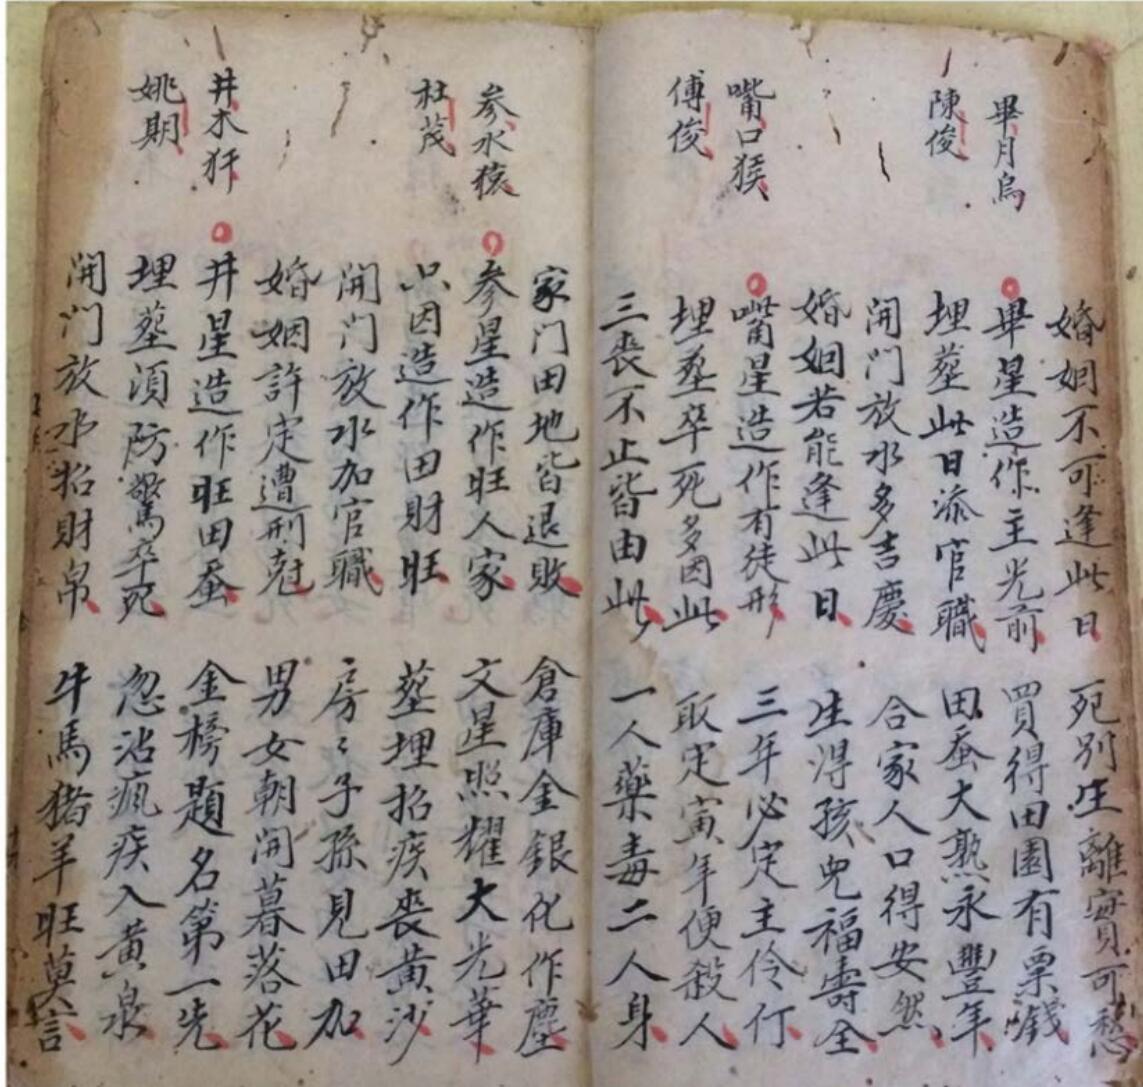 婚姻不可逢此日 死別生離實可愁
畢月烏
陳俊
畢星造作主光前 買得田園有栗錢
埋塟此日添官職 田蚕大熟永豐年
開門放水多吉慶 合家人口得安然
婚姻若能逢此日 生得孩児福壽全
嘴口猴
傅俊
嘴星造作有徒形 三年必定主伶仃
埋塟卒死多因此 取定寅年便殺人
三喪不止皆由此 一人藥毒二人身
家门田地皆退敗 倉庫金銀化作塵
参水猿
杜茂
参星造作旺人家 文星照耀大光華
只因造作田財旺 塟埋招疾喪黃沙
開门放水加官職 房〻子孫見田加
婚姻許定遭刑尅 男女朝開暮落花
井木犴
姚期
井星造作旺田蚕 金榜題名第一先
埋塟須防驚卒死 忽沾瘋疾入黃泉
開门放水招財帛 牛馬猪羊旺莫言